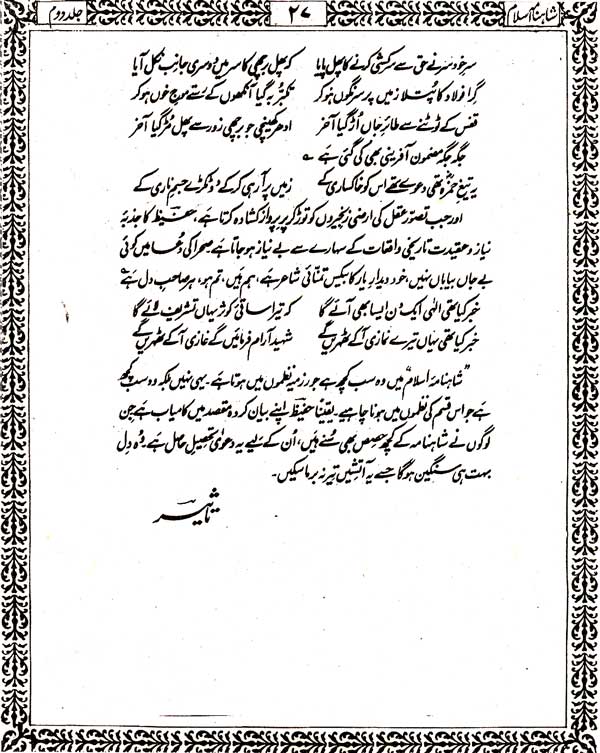 شاہنامہ اسلام
۲۷
جلد دوم
سر خود سر نے حق سے سرکشی کرنے کا پھل پایا کہ پھل برچھی کا سر میں دوسری جانب نکل آیا
گرا فولاد کا پُتلا زمیں پر سرنگوں ہو کر تکبر بہ گیا آنکھوں کے رستے موج خوں ہو کر
قفس کے ٹوٹنے سے طائرِ جاں اُڑ گیا آخر ادھر کھینچی جو برچھی زور سے پھل مُڑ گیا آخر
جگہ جگہ مضمون آفرینی بھی کی گئی ہے ؎
یہ تیغ حمزہؓ تھی دعوے تھے اس کو خاکساری کے زمیں پر آ رہی کر کے دو ٹکڑے جسم ناری کے
اور جب تصور عقل کی ارضی زنجیروں کو توڑ کر پر پرواز کشادہ کرتا ہے، حفیظ کا جذبہ
نیاز و عقیدت تاریخی واقعات کے سہارے سے بے نیاز ہو جاتا ہے صحرا کی دُعا میں کوئی
بے جاں بیاباں نہیں، خود دیدار یار کا بیکس تمنائی شاعر ہے، ہم ہیں، تم ہو، ہر صاحب دل ہے ؎
خبر کیا تھی الٰہی ایک دن ایسا بھی آئے گا کہ تیرا ساقیٔ کوثر یہاں تشریف لائے گا
خبر کیا تھی یہاں تیرے نمازی آ کے ٹھہریں گے شہید آرام فرمائیں گے غازی آ کے ٹھہریں گے
”شاہنامہ اسلام“ میں وہ سب کچھ ہے جو رزمیہ نظموں میں ہوتا ہے۔ یہی نہیں بلکہ وہ سب کچھ
ہے جو اس قسم کی نظموں میں ہونا چاہیے۔ یقیناً حفیظ اپنے بیان کردہ مقصد میں کامیاب ہے جن
لوگوں نے شاہنامہ کے کچھ حصص بھی سُنے ہیں، اُن کے لیے یہ دعویٰ تحصیل حاصل ہے۔ وہ دل
بہت ہی سنگین ہوگا جسے یہ آتشیں تیر نہ برما سکیں۔
تاثیر